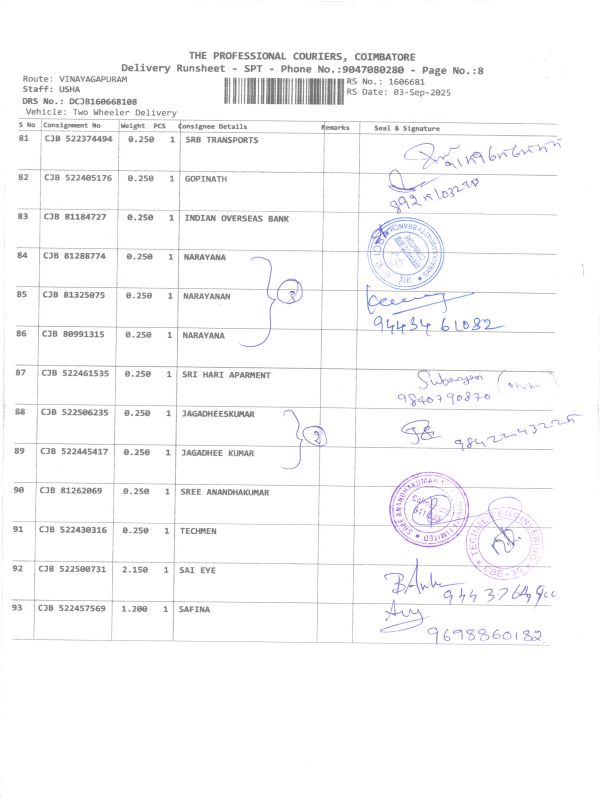 THE PROFESSIONAL COURIERS, COIMBATORE
Delivery Runsheet - SPT - Phone No.:9047080280 - Page No.:8
Route: VINAYAGAPURAM
RS No.: 1606681
Staff: USHA
RS Date: 03-Sep-2025
DRS No.: DCJB160668108
Vehicle: Two Wheeler Delivery
S No Consignment No Weight PCS Consignee Details Remarks Seal & Signature
81 CJB 522374494 0.250 1 SRB TRANSPORTS
82 CJB 522405176 0.250 1 GOPINATH
83 CJB 81184727 0.250 1 INDIAN OVERSEAS BANK
84 CJB 81288774 0.250 1 NARAYANA
85 CJB 81325075 0.250 1 NARAYANAN
3
9443461082
86 CJB 80991315 0.250 1 NARAYANA
87 CJB 522461535 0.250 1 SRI HARI APARMENT
9840790870
88 CJB 522506235 0.250 1 JAGADHEESKUMAR
2
89 CJB 522445417 0.250 1 JAGADHEE KUMAR
90 CJB 81262069 0.250 1 SREE ANANDHAKUMAR
91 CJB 522430316 0.250 1 TECHMEN
92 CJB 522500731 2.150 1 SAI EYE
93 CJB 522457569 1.200 1 SAFINA
9698860182